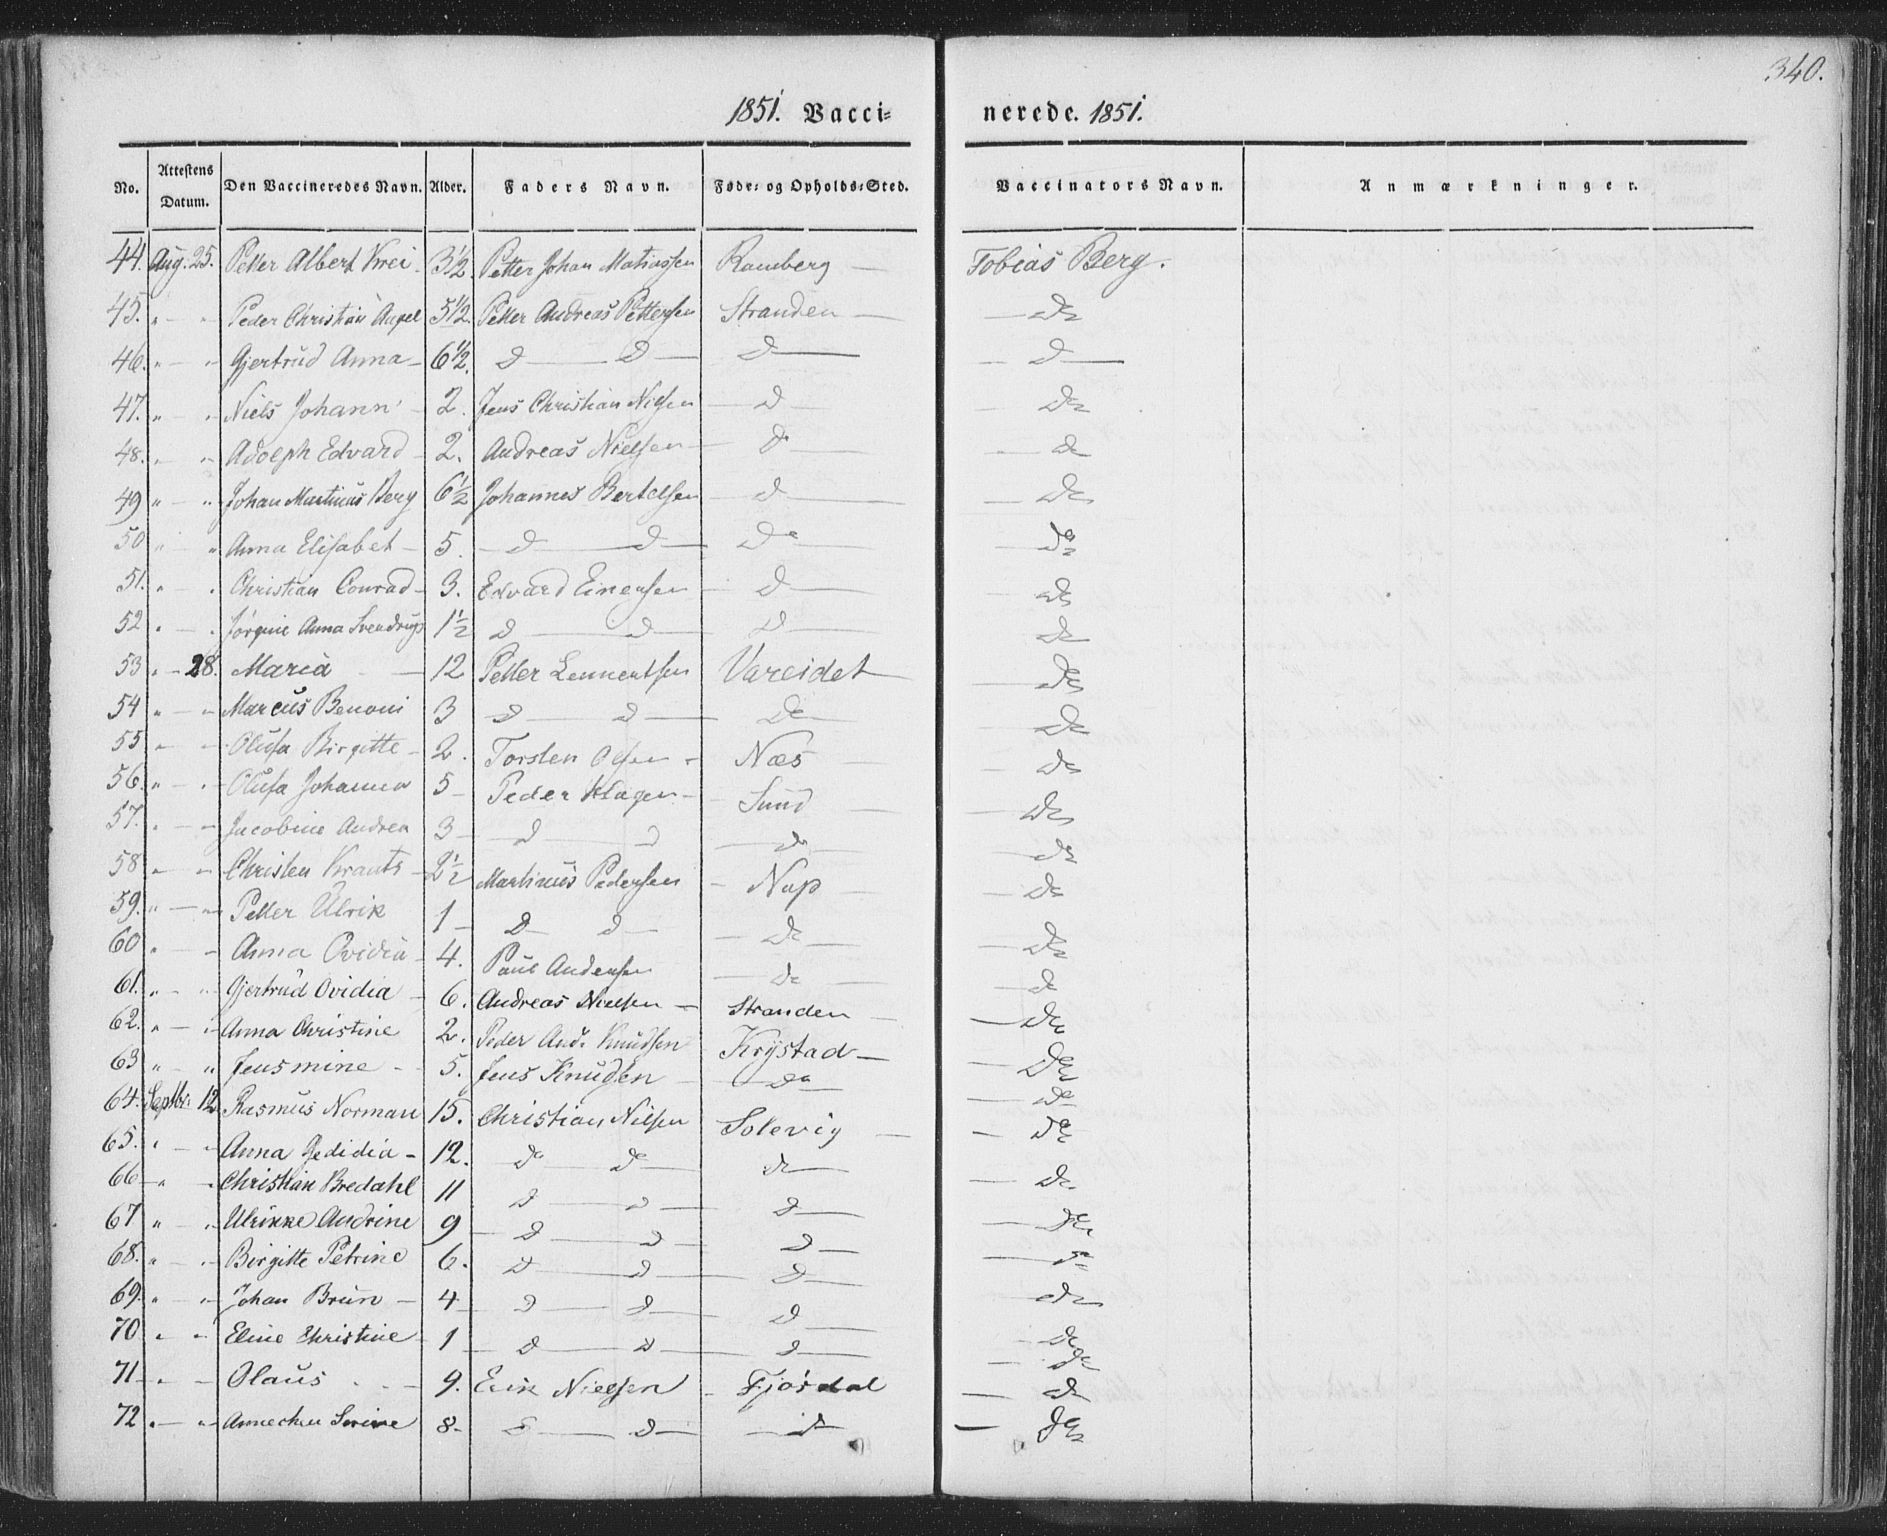 340.
1851. Vacci= nerede. 1851.
No. Attestens Datum. Den Vaccineredes Navn. Alder. Faders Navn. Føde= og Opholds=Sted. Vaccinators Navn. Anmærkninger.
44. Aug. 25. Petter Albert Krei 3 1/2 Petter Johan Mathiassen Ramberg — Tobias Berg.
45. " " Peder Christian Angel 5 1/2 Petter Andreas Pettersen Stranden — Do
46. " " Gjertrud Anna 6 1/2 D — D — D — D —
47. " " Niels Johann 2. Jens Christian Nilsen D — Do
48. " " Adolph Edvard 2. Andreas Nielsen Do — Do
49 " " Johan Martinus Berg 6 1/2 Johannes Bertelsen D — Do
50 " " Anna Elisabet 5. D — D — Do — Do
51. " " Christian Conrad 3. Edvard Einersen D — Do
52 " " Jørgine Anna Svendrup 1 1/2 D — D — D — Do
53 " 28. Maria 12 Petter Lennertsen Vareidet — Do
54 " " Marcus Benoni 3 D — D — Do — Do
55 " " Olufa Birgitte 2. Torsten Olsen Næs — Do
56. " " Olufa Johanna 5 Peder Hagen Sund — Do
57. " " Jacobine Andrea 3 D — D — Do — Do
58 " " Christen Krants 2 1/2 Martinus Pedersen Nap — Do
59. " " Petter Ulrik 1 D — D — Do — Do
60 " Anna Ovidia 4. Paul Andersen Do — Do
61. " " Gjertrud Ovidia 6. Andreas Nielsen Stranden — Do
62. " " Anna Christine 2. Peder And: Knudsen Krystad — Do
63 " " Jensmine 5. Jens Knudsen Do — Do
64. Septbr: 12 Rasmus Norman 15. Christian Nilsen Solevig — Do
65. " " Anna Gedidia 12. Do — Do — Do — Do
66 " " Christian Bredahl 11 D — D — D — Do
67 " " Ulrikke Andrine 9 D — D — D — Do
68. " " Birgitte Petrine 6. D — D — D — Do
69. " " Johan Brun 4 D — D — D — Do
70. " " Eline Christine 1 D — D — D — Do
71 " Olaus 9. Erik Nielsen Fjørdal Do
72 " " Annechen Serine 8. D — D — Do — Do